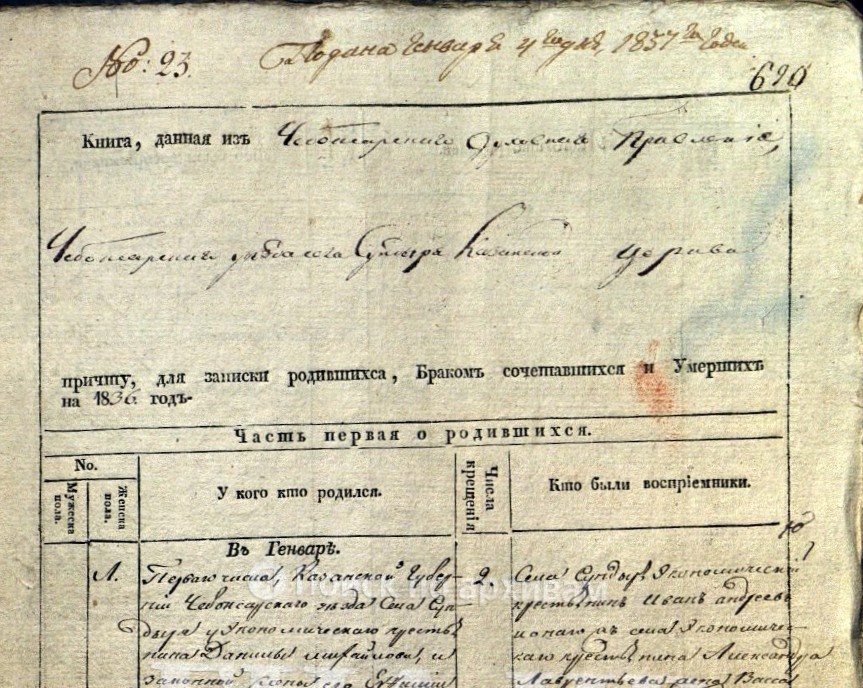 No: 23.
Подана Генваря 4 го дня, 1837 го года
620
Книга, данная изъ Чебоксарскаго Духовнаго Правленія,
Чебоксарскаго уѣзда села Сундыря Казанской церкви
причту, для записки родившихся, Бракомъ сочетавшихся и Умершихъ
на 1836 годъ.
Часть первая о родившихся.
No.
Мужеска пола.
Женска пола.
У кого кто родился.
Числа крещенія
Кто были воспріемники.
Въ Генварѣ.
1.
Перваго числа, Казанской Губер-
ніи Чебоксарскаго уѣзда Села Сун-
дыря у Экономическаго кресть-
янина Данилы Михайлова, и
законной жены его
2.
Села Сундыря Экономической
крестьянинъ Иванъ Андреевъ
села Экономиче-
скаго крестьянина Александра
Лаврентьева жена Васса
Поиск по архивам